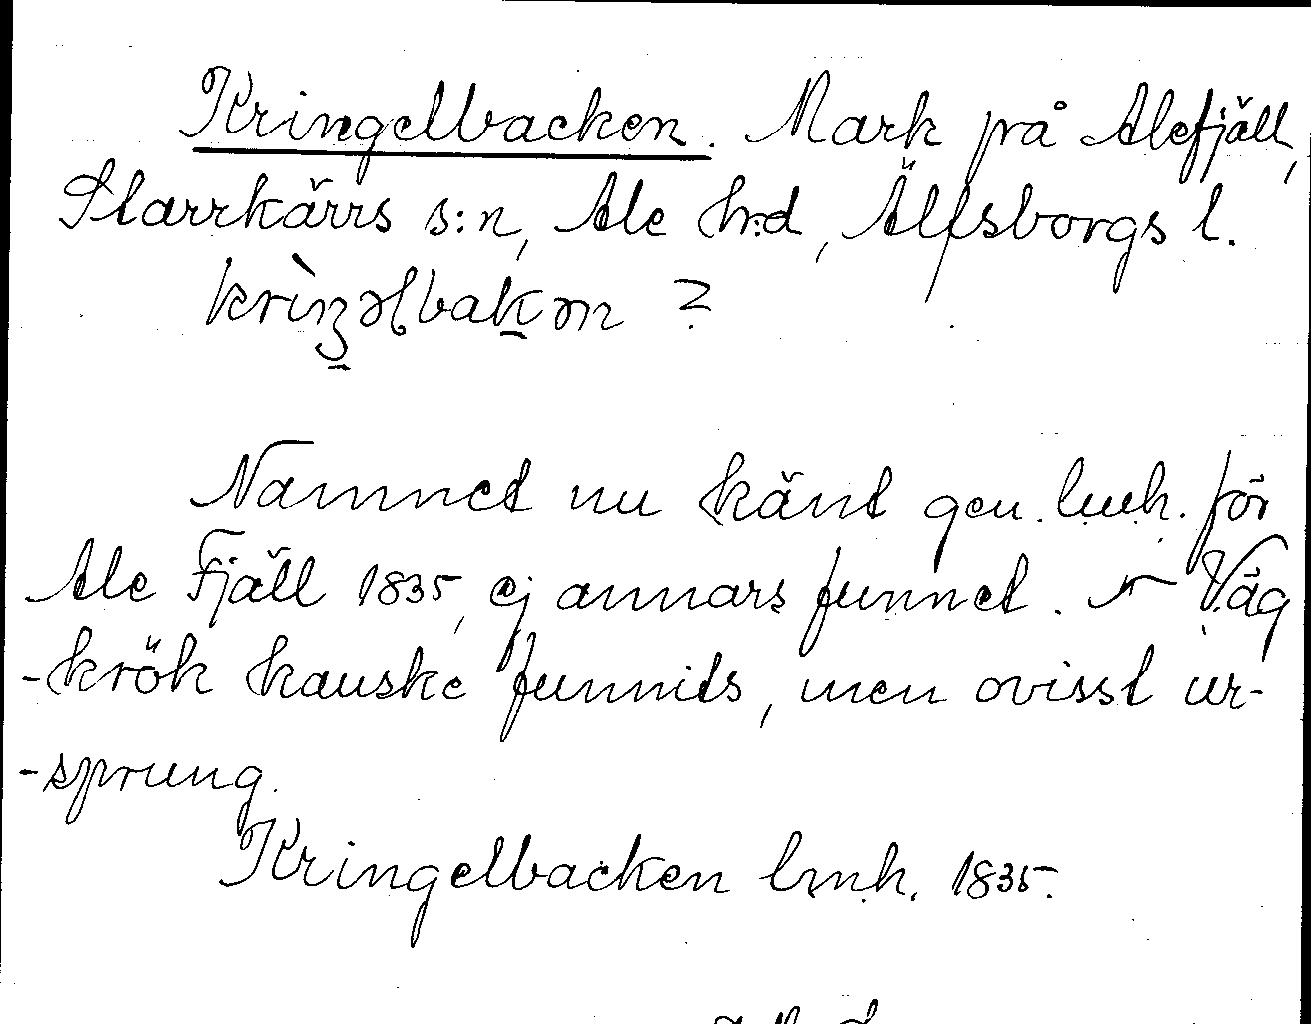 Kringelbacken. Mark på Alefjäll,
Starrkärrs s:n, Ale h:d, Älfsborgs l.
krìŋəlbakən ?
Namnet nu känt gen. lmh. för
Ale Fjäll 1835, ej annars funnet. Väg
-krök kanske funnits, men ovisst ur-
-sprung.
Kringelbacken lmh. 1835.